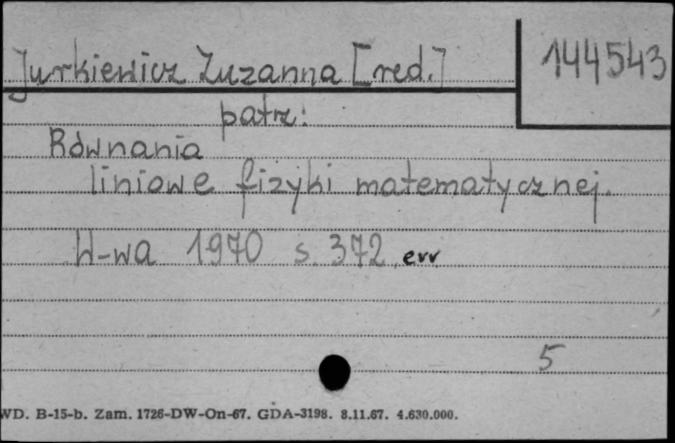 Jurkiewicz Zuzanna [red.]
144543
patrz:
Równania
liniowe fizyki matematycznej.
W-wa 1970 s. 372, err
5
WD. B-15-b. Zam. 1726-DW-On-67. GDA-3198. 8.11.67. 4.630.000.